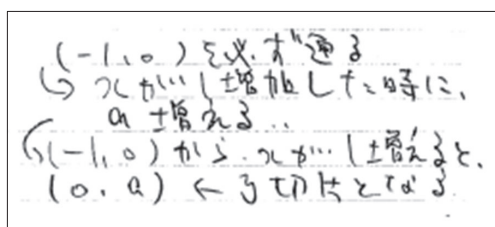 (-1,0)を必ず通る
↳ xが1増加した時に、
a 増える..
↳(-1,0)から、xが1増えると、
(0,a) ← y切片となる